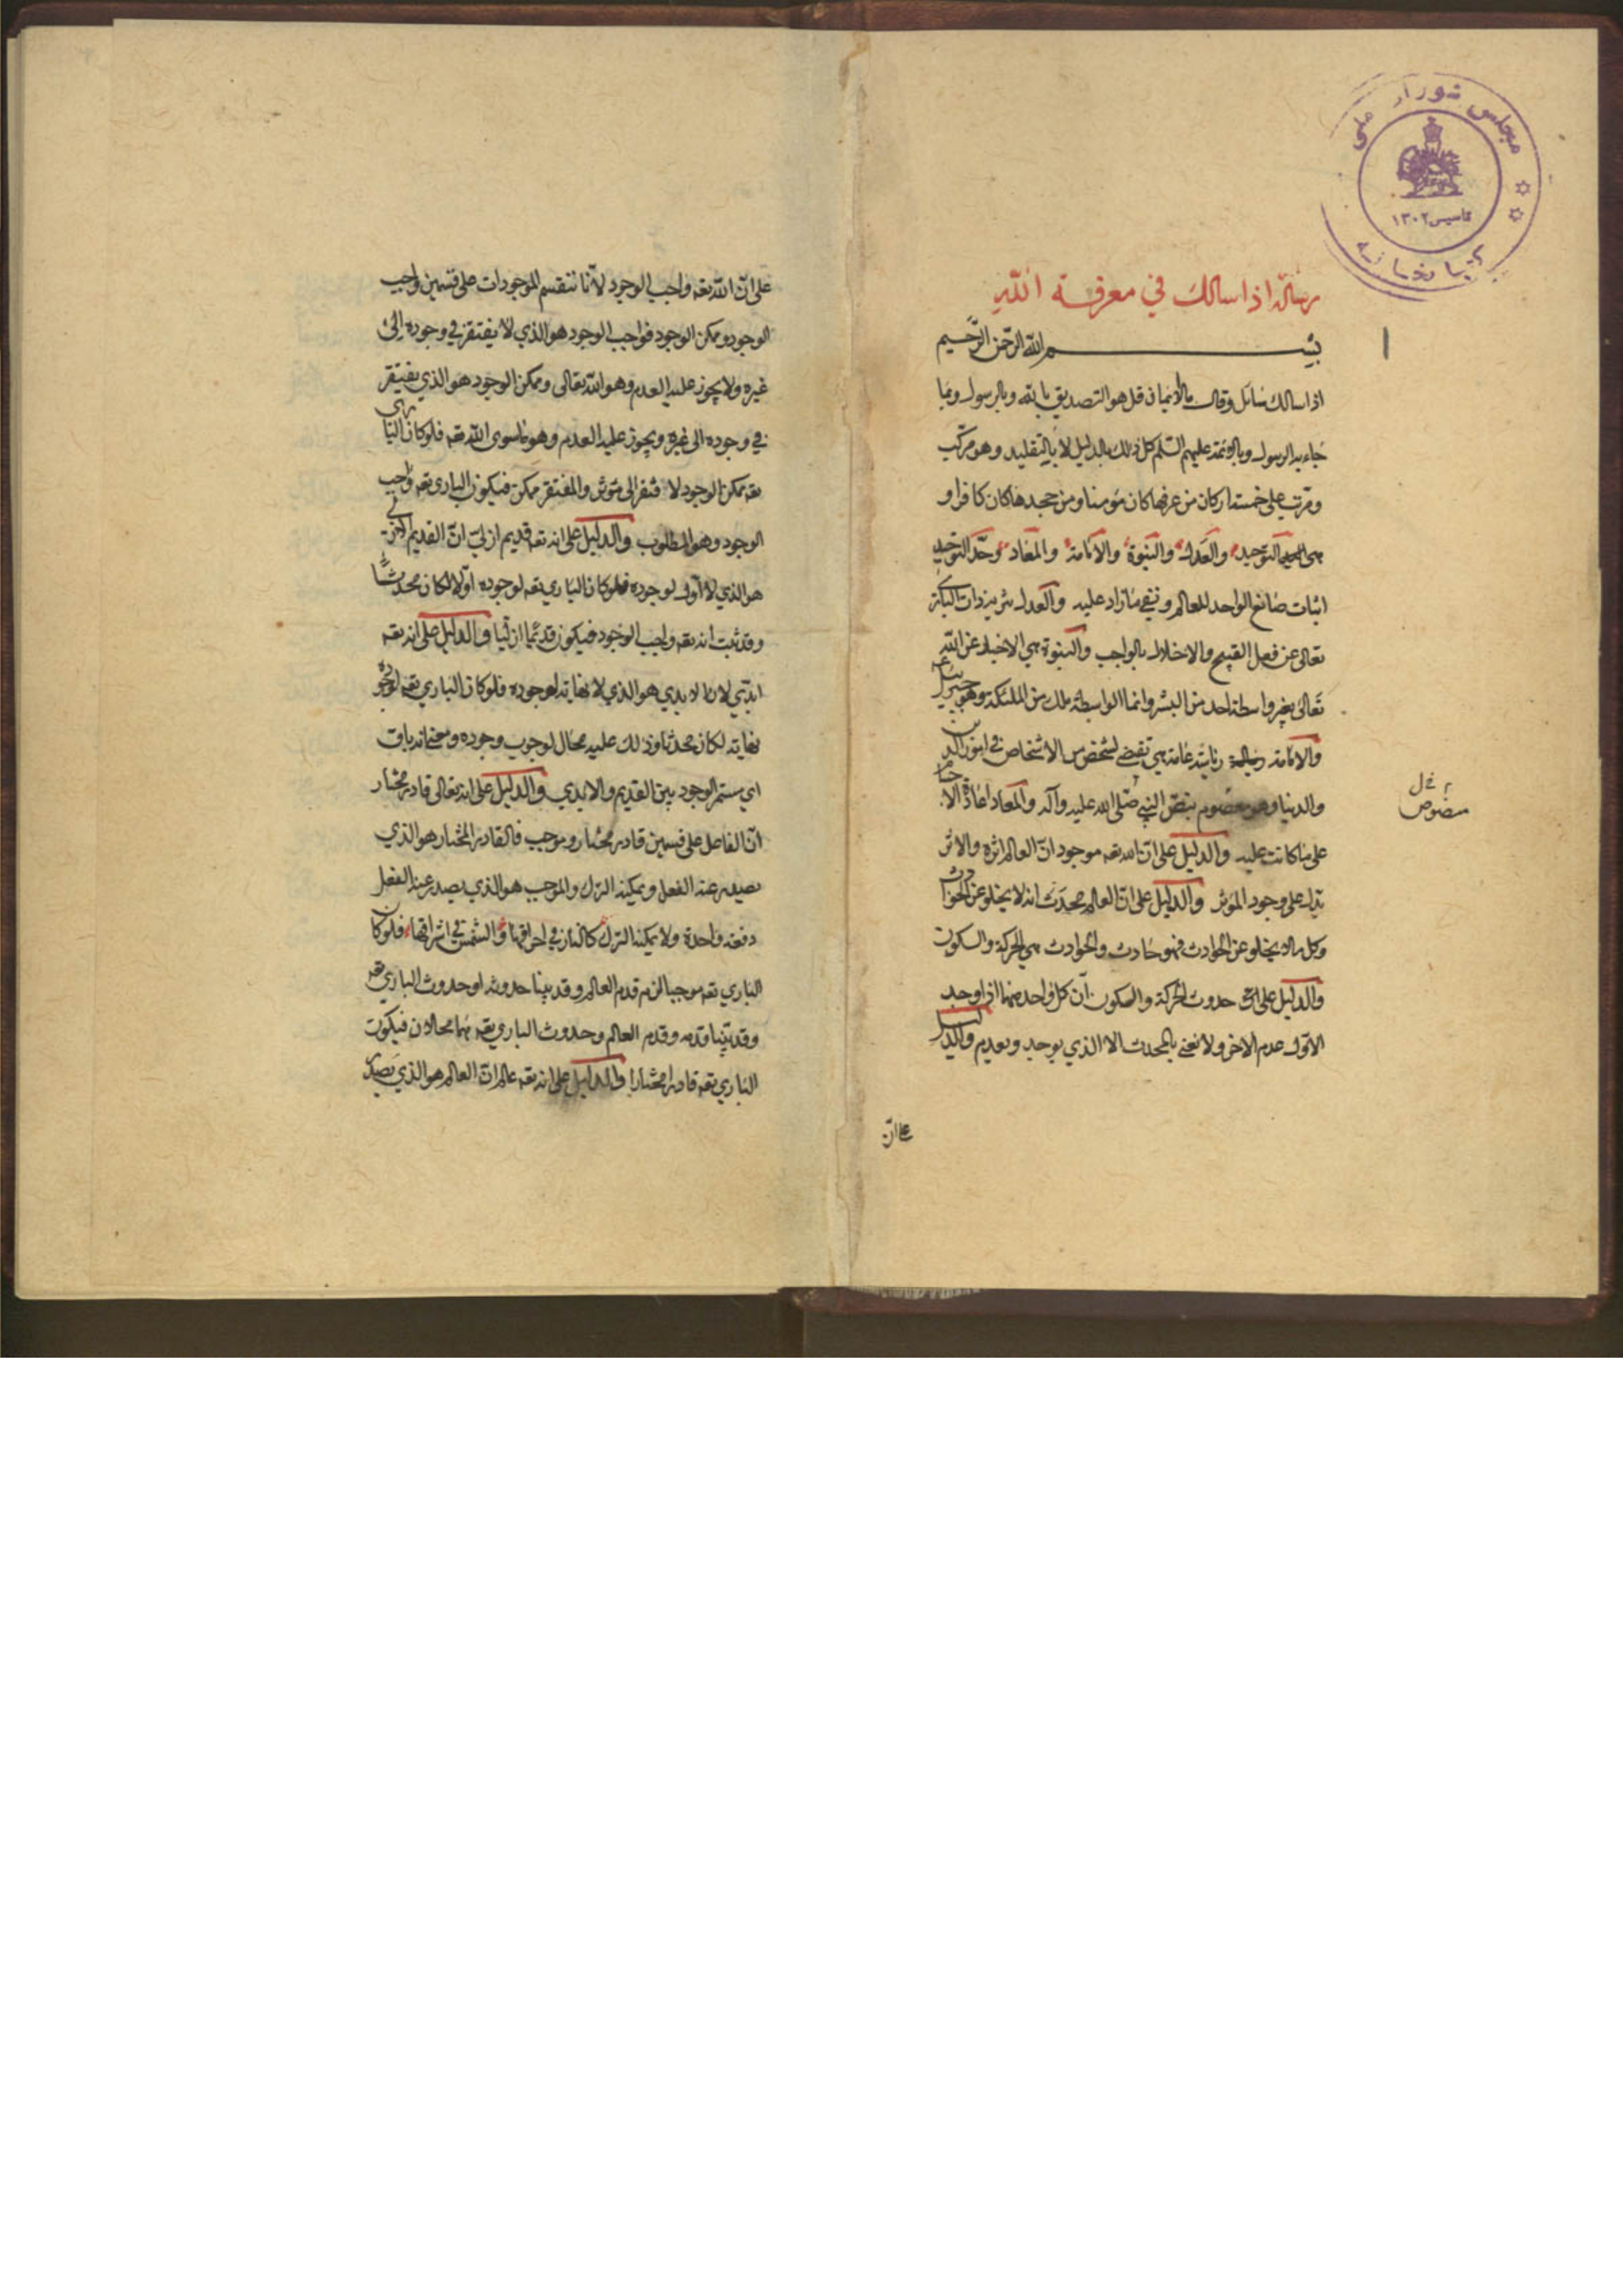 مجلس شورای ملی
تاسیس ۱۳۰۲
کتابخانه
رسالة اذا سالك في معرفة الله
بسم الله الرحمن الرحيم
اذا سالك سائل وقال ما الايمان قل هو التصديق بالله وبالرسول وبما
جاء به الرسول وبالائمة عليهم السلم كل ذلك بالدليل لا بالتقليد وهو مركب
ومرتب على خمسة اركان من عرفها كان مؤمنا ومن جحدها كان كافرا و
هي التوحيد والعدل والنبوة والامامة والمعاد وحد التوحيد
اثبات صانع الواحد للعالم ونفي ما زاد عليه والعدل تنزيه ذات الباري
تعالى عن فعل القبيح والاخلال بالواجب والنبوة هي الاخبار عن الله
تعالى بغير واسطة احد من البشر وانما الواسطة ملك من الملئكة وهو جبرئيل
والامامة رياسة عامة هي تقضي لشخص من الاشخاص في امور الدين
والدنيا وهو معصوم بنص النبي صلى الله عليه وآله والمعاد اعادة الاجسام
منصوص
على ما كانت عليه والدليل على ان الله تعه موجود ان العالم اثره والاثر
يدل على وجود المؤثر والدليل على ان العالم محدث انه لا يخلو عن الحوادث
وكل ما لا يخلو عن الحوادث فهو حادث والحوادث هي الحركة والسكون
والدليل على حدوث الحركة والسكون ان كل واحد منهما اذا وجد
الاول عدم الاخر ولا نعني بالمحدث الا الذي يوجد ويعدم والدليل
على ان
على ان الله تعه واجب الوجود لانا نقسم الموجودات على قسمين واجب
الوجود وممكن الوجود فواجب الوجود هو الذي لا يفتقر في وجوده الى
غيره ولا يجوز عليه العدم وهو الله تعالى وممكن الوجود هو الذي يفتقر
في وجوده الى غيره ويجوز عليه العدم وهو ما سوى الله تعه فلو كان الباري
تعه ممكن الوجود لافتقر الى مؤثر والمفتقر ممكن فيكون الباري تعه واجب
الوجود وهو المطلوب والدليل على انه تعه قديم ازلي ان القديم الازلي
هو الذي لا اول لوجوده فلو كان الباري تعه لوجوده اولا لكان محدثا
وقد ثبت انه تعه واجب الوجود فيكون قديما ازليا والدليل على انه تعه
ابدي لان الابدي هو الذي لا نهاية لوجوده فلو كان الباري تعه لوجوده
نهاية لكان محدثا وذلك عليه محال لوجوب وجوده ومعنى انه باق
اي مستمر الوجود بين القديم والابدي والدليل على انه تعالى قادر مختار
ان الفاعل على قسمين قادر مختار وموجب فالقادر المختار هو الذي
يصدر عنه الفعل ويمكنه الترك والموجب هو الذي يصدر عنه الفعل
دفعة واحدة ولا يمكنه الترك كالنار في احراقها والشمس في اشراقها فلو كان
الباري تعه موجبا لزم قدم العالم وقد بينا حدوثه او حدوث الباري تعه
وقد بينا قدمه وقدم العالم وحدوث الباري تعه هما محالان فيكون
الباري تعه قادرا مختارا والدليل على انه تعه عالم ان العالم هو الذي يصدر